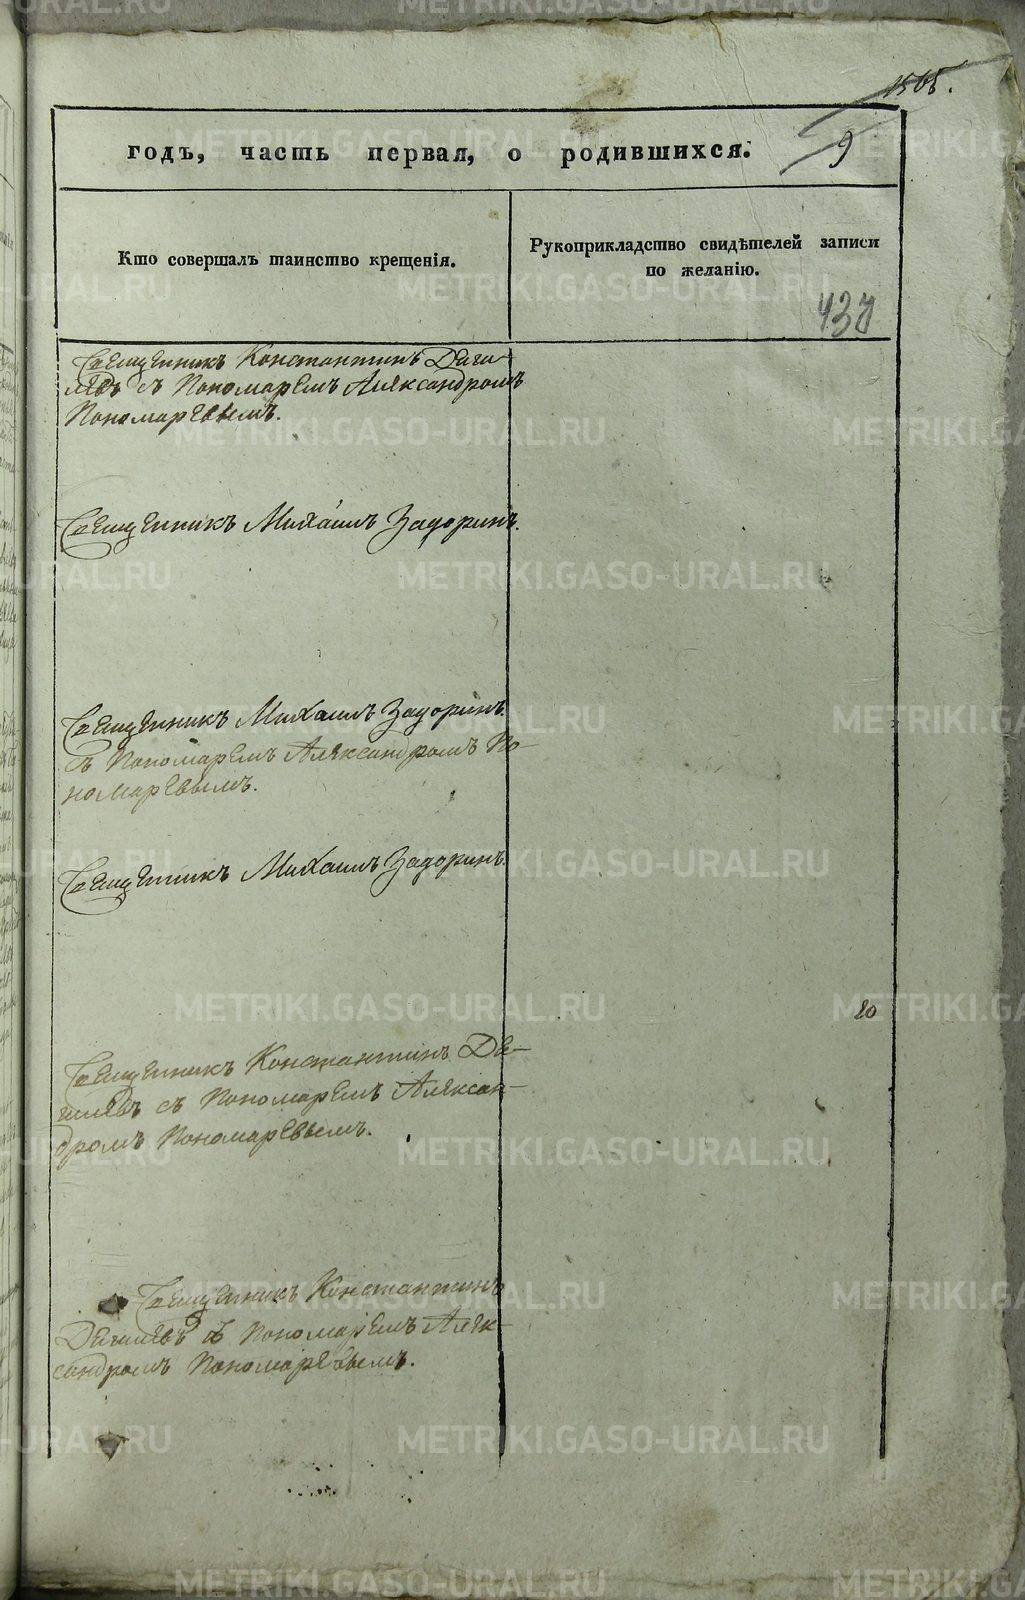 1565.
годъ, часть первая, о родившихся.
9
Кто совершалъ таинство крещенія.
Рукоприкладство свидѣтелей записи
по желанію.
437
Священникъ Константинъ Деги-
левъ съ Пономаремъ Александромъ
Пономаревымъ.
Священникъ Михаилъ Задоринъ.
Священникъ Михаилъ Задоринъ.
съ Пономаремъ Александромъ По-
номаревымъ.
Священникъ Михаилъ Задоринъ.
20
Священникъ Константинъ Де-
гилевъ съ Пономаремъ Алексан-
дромъ Пономаревымъ.
Священникъ Константинъ
Дегилевъ съ Пономаремъ Алек-
сандромъ Пономаревымъ.
METRIKI.GASO-URAL.RU